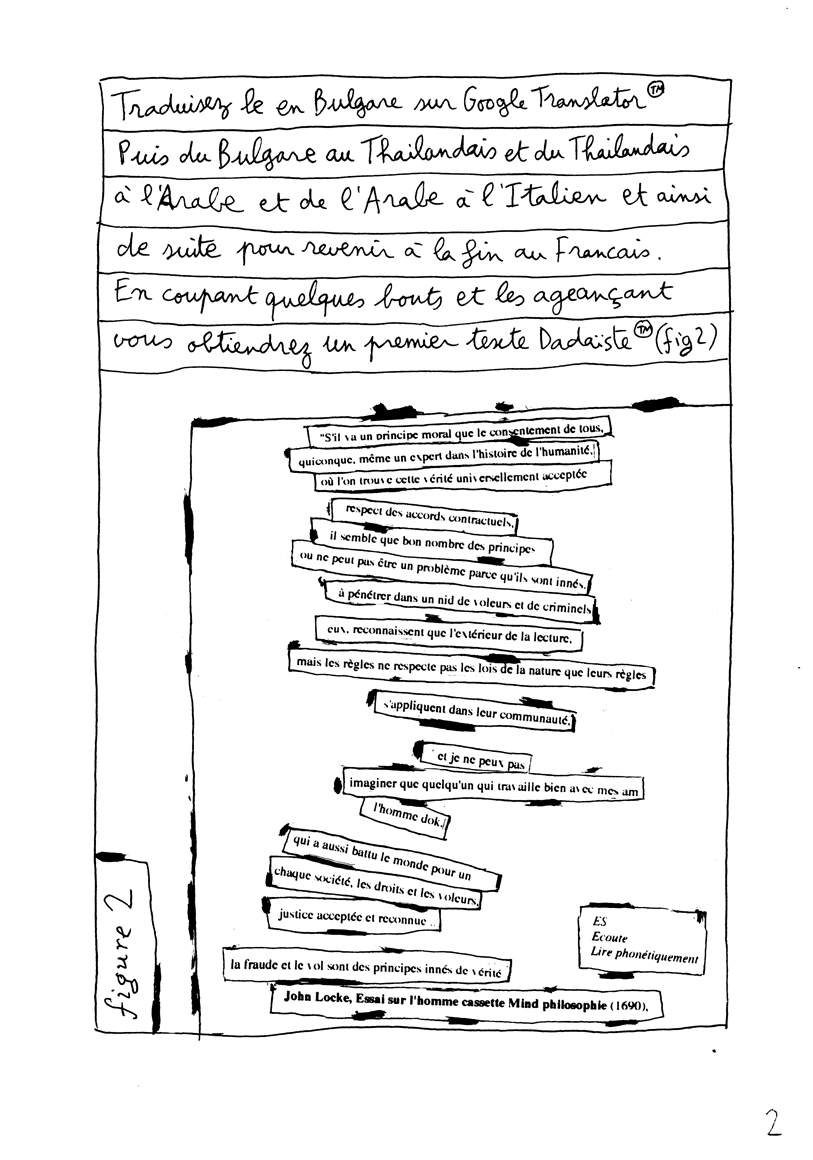 Traduisez le en Bulgare sur Google Translator™
Puis du Bulgare au Thailandais et du Thailandais
à l'Arabe et de l'Arabe à l'Italien et ainsi
de suite pour revenir à la fin au Francais.
En coupant quelques bouts et les ageançant
vous obtiendrez un premier texte Dadaïste™ (fig2)
"S'il va un principe moral que le consentement de tous,
quiconque, même un expert dans l'histoire de l'humanité,
où l'on trouve cette vérité universellement acceptée
respect des accords contractuels,
il semble que bon nombre des principes
ou ne peut pas être un problème parce qu'ils sont innés,
à pénétrer dans un nid de voleurs et de criminels
eux, reconnaissent que l'extérieur de la lecture,
mais les règles ne respecte pas les lois de la nature que leurs règles
s'appliquent dans leur communauté,
et je ne peux pas
imaginer que quelqu'un qui travaille bien avec mes am
l'homme dok,
qui a aussi battu le monde pour un
chaque société, les droits et les voleurs,
justice acceptée et reconnue ..
la fraude et le vol sont des principes innés de vérité
John Locke, Essai sur l'homme cassette Mind philosophie (1690),
ES
Ecoute
Lire phonétiquement
figure 2
2